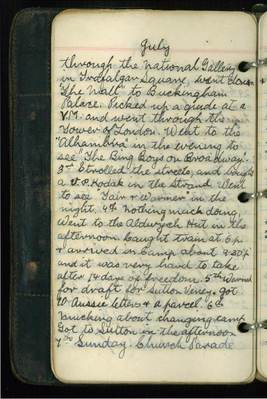 July
through the national Gallery
in Trafalgar Square, went down
"The Mall" to Buckingham
Palace. Picked up a guide at a
Y.M. and went through the
Tower of London. Went to the
"Alhambra in the evening to
see "The Bing Boys on Broadway.
3rd Strolled the streets, and bought
a V.P. Kodak in the Strand. Went
to see "Fair & Warmer" in the
night. 4th Nothing much doing,
Went to the Aldwych Hut in the
afternoon. Caught train at 6 p
& arrived in Camp about 9.30 p
and it was very hard to take
after 14 days of freedom. 5th Warned
for draft for Sutton Veney, got
20 Aussie letters & a parcel. 6th
Mucking about changing camp
Got to Sutton in the afternoon
7th Sunday Church Parade